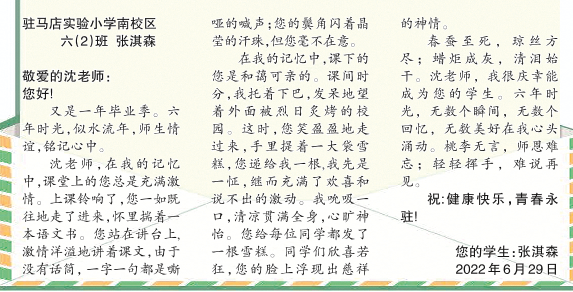 驻马店实验小学南校区
六(2)班 张淇森
敬爱的沈老师:
您好!
又是一年毕业季。六
年时光,似水流年,师生情
谊,铭记心中。
沈老师,在我的记忆
中,课堂上的您总是充满激
情。上课铃响了,您一如既
往地走了进来,怀里揣着一
本语文书。您站在讲台上,
激情洋溢地讲着课文,由于
没有话筒,一字一句都是嘶
哑的喊声;您的鬓角闪着晶
莹的汗珠,但您毫不在意。
在我的记忆中,课下的
您是和蔼可亲的。课间时
分,我托着下巴,发呆地望
着外面被烈日炙烤的校
园。这时,您笑盈盈地走
过来,手里提着一大袋雪
糕,您递给我一根,我先是
一怔,继而充满了欢喜和
说不出的激动。我吮吸一
口,清凉贯满全身,心旷神
怡。您给每位同学都发了
一根雪糕。同学们欣喜若
狂,您的脸上浮现出慈祥
的神情。
春蚕至死,琼丝方
尽;蜡炬成灰,清泪始
干。沈老师,我很庆幸能
成为您的学生。六年时
光,无数个瞬间,无数个
回忆,无数美好在我心头
涌动。桃李无言,师恩难
忘;轻轻挥手,难说再
见。
祝:健康快乐,青春永
驻!
您的学生:张淇森
2022年6月29日